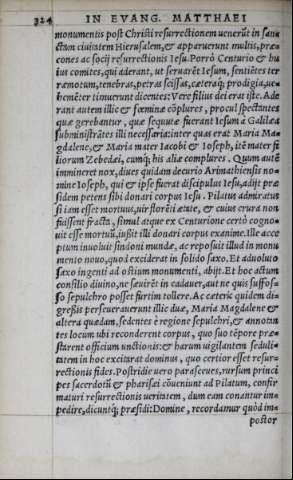 324 IN EVANG. MATTHAEI
monumentis post Christi resurrectionem uenerũt in san
ctam ciuitatem Hierusalem, & apparuerunt multis, præ
cones ac socij resurrectionis Iesu. Porrò Centurio & hu
ius comites, qui aderant, ut seruarẽt Iesum, sentiẽtes ter
ræmotum, tenebras, petras scissas, cæteraq́; prodigia, ue
hemẽter timuerunt dicentes: Vere filius dei erat iste. Ade
rant autem illic & fœminæ cõplures, procul spectantes
quæ gerebantur, quæ sequutæ fuerant Iesum à Galilæa
subministrãtes illi necessaria: inter quas erãt Maria Ma
gdalene, & Maria mater Iacobi & Ioseph, itẽ mater fi
liorum Zebedæi, cumq́; his aliæ complures. Quum autẽ
immineret nox, diues quidam decurio Arimathiensis no
mine Ioseph, qui & ipse fuerat discipulus Iesu, adijt præ
sidem petens sibi donari corpus Iesu. Pilatus admiratus
si iam esset mortuus, uir florẽti ætate, & cuius crura non
fuissent fracta, simul atque ex Centurione certò cogno-
uit esse mortuũ, iußit illi donari corpus exanime. Ille acce
ptum inuoluit sindoni mundæ, ac reposuit illud in monu
mento nouo, quod exciderat in solido saxo. Et aduoluto
saxo ingenti ad ostium monumenti, abijt. Et hoc actum
consilio diuino, ne sæuirẽt in cadauer, aut ne quis suffos-
so sepulchro posset furtim tollere. Ac cæteris quidem di-
gressis perseuerauerunt illic duæ, Maria Magdalene &
altera quædam, sedentes è regione sepulchri, & annotan
tes locum ubi reconderent corpus, quo suo tẽpore præ-
starent officium unctionis: & harum uigilantem seduli-
tatem in hoc excitarat dominus, quo certior esset resur-
rectionis fides. Postridie uero parasceues, rursum princi
pes sacerdotũ & pharisæi cõueniunt ad Pilatum, confir
maturi resurrectionis ueritatem, dum eam conantur im-
pedire, dicuntq́; præsidi: Domine, recordamur quòd im-
postor